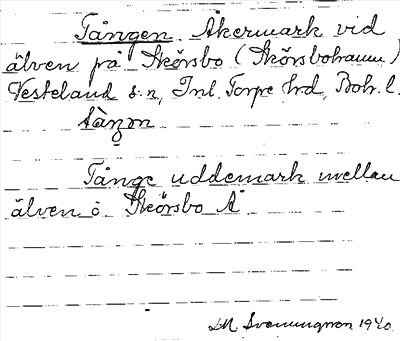 Tången Åkermark vid
älven på Skörsbo (Skörsbohamn)
Vesteland s:n, Inl. Torpe hd, Boh. l.
tàŋən
Tånge uddemark mellan
älven o Skörsbo Å
M. Svenungson 1940.